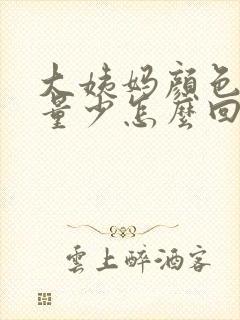 大姨妈顏色
量少怎麼回
雲上醉酒客